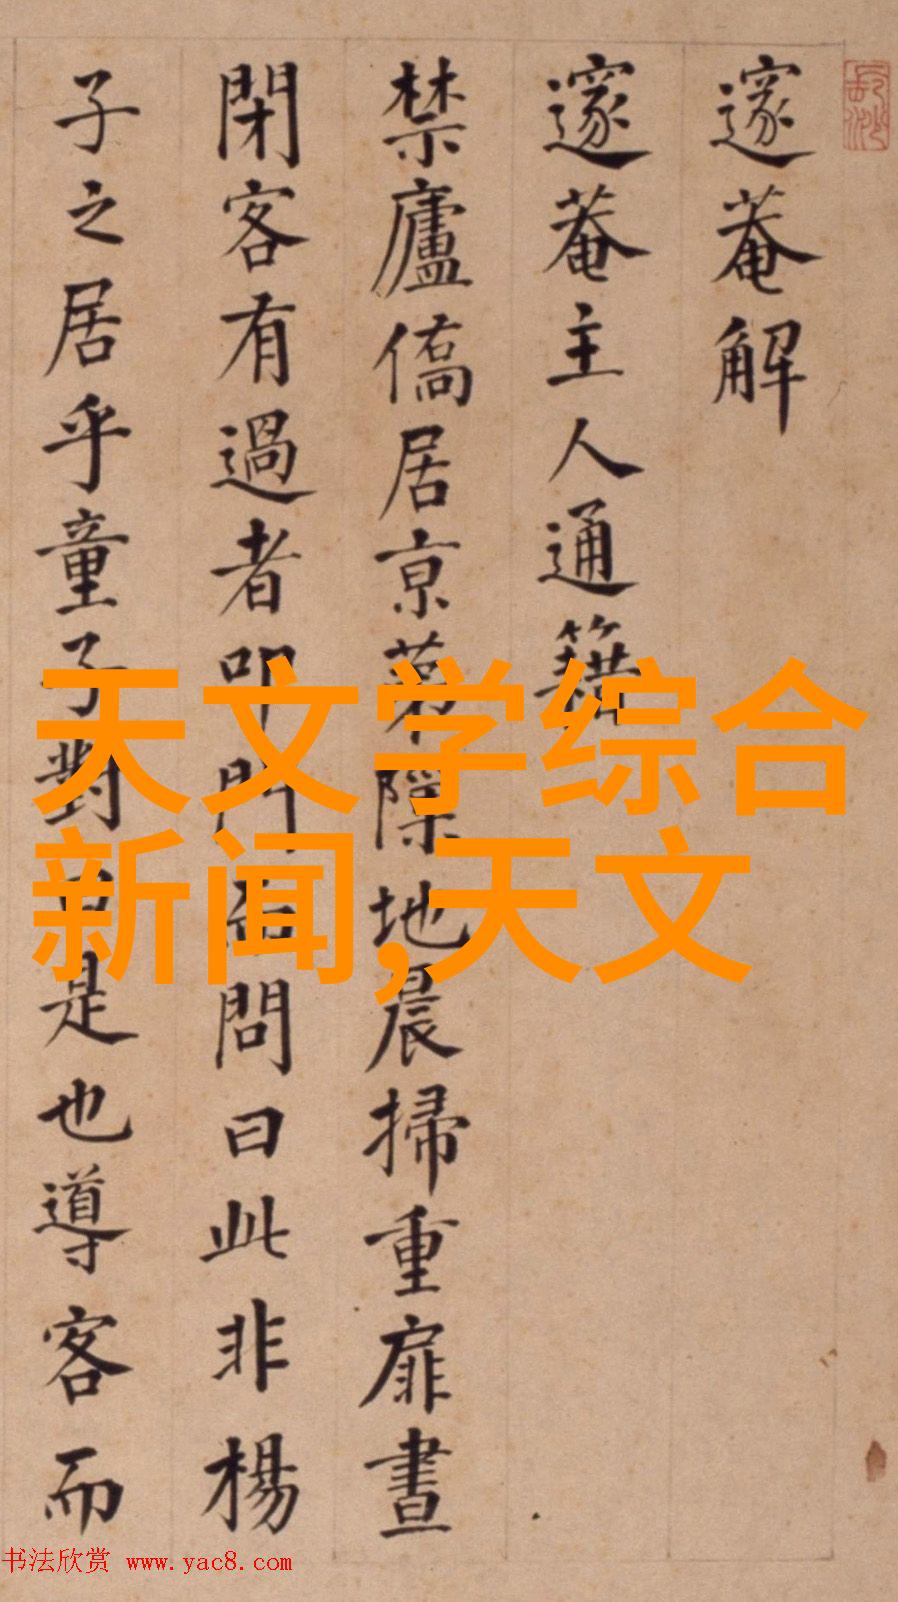 邃菴解
邃菴主人通籍
禁廬僑居京第隙地晨掃重扉晝
閉客有過者叩門而問曰此非楊
子之居乎童子對曰是也導客而
天文学综合
新闻,天文
书法欣赏 www.yac8.com